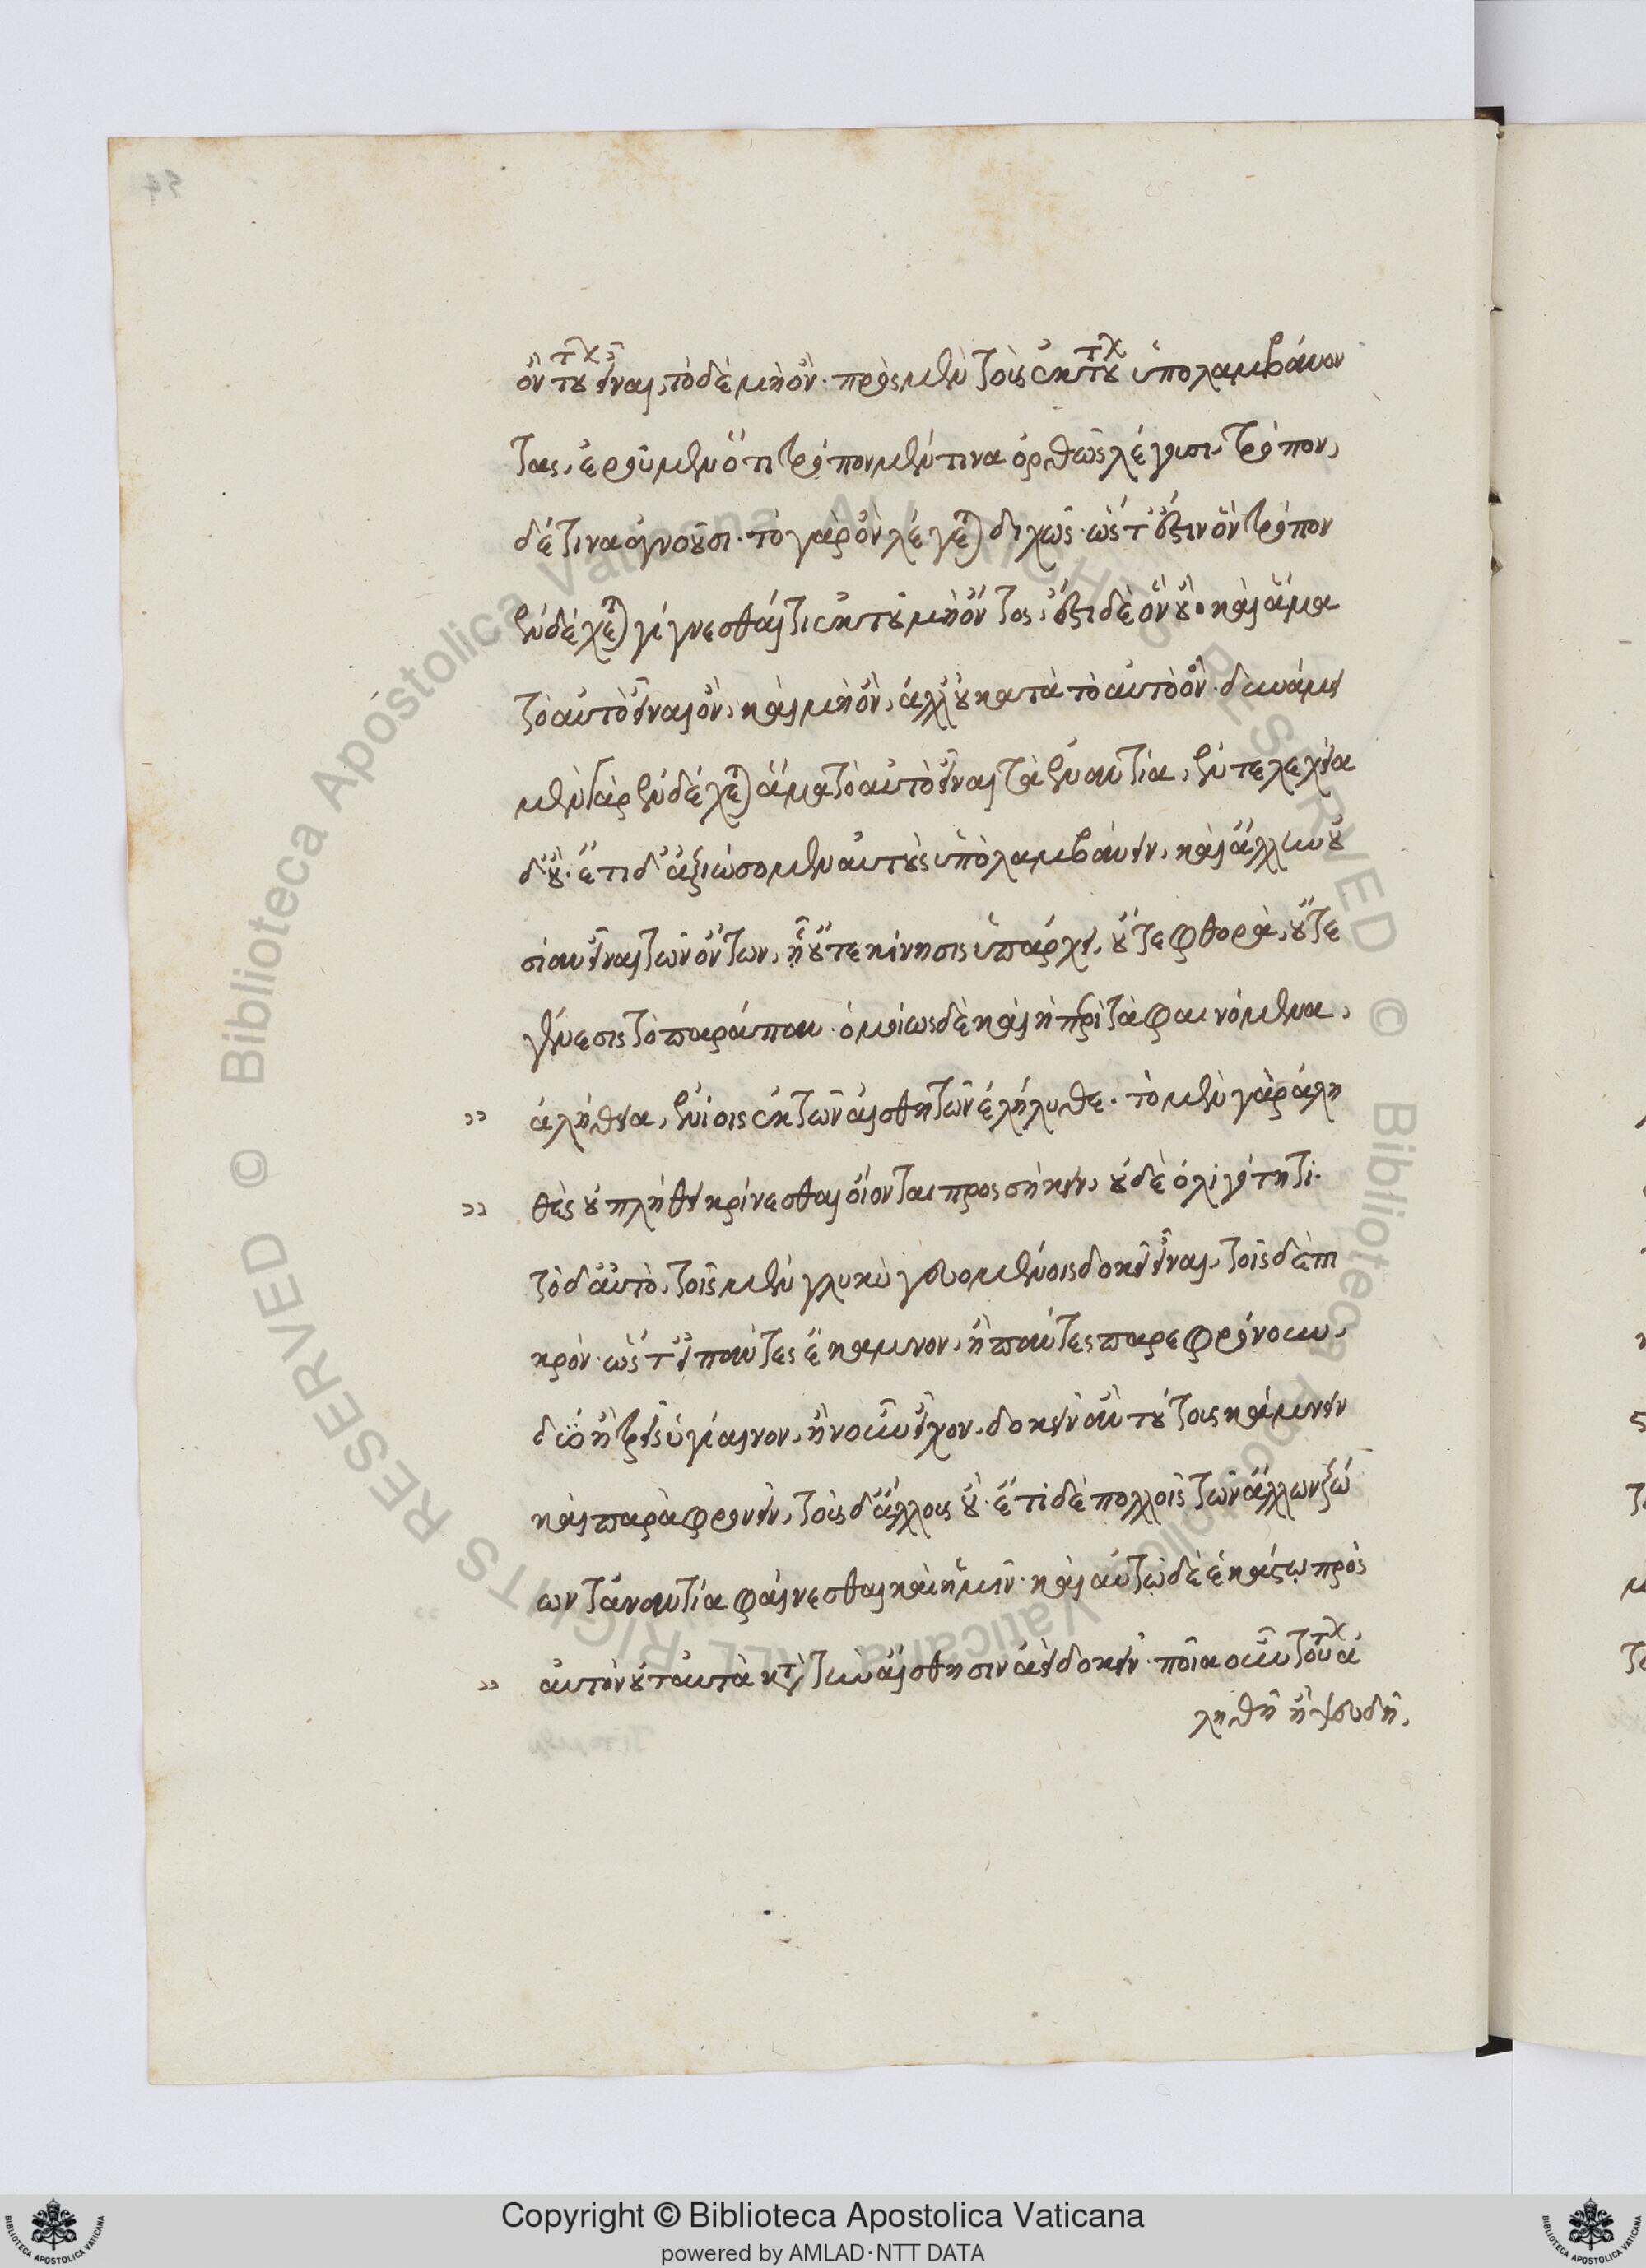 ὂν τούτων εἶναι, τὸ δὲ μὴ ὄν. πρὸς μὲν τοὺς ἐκ τούτων ὑπολαμβάνον
τας, ἐροῦμεν ὅτι τρόπον μέν τινα ὀρθῶς λέγουσι, τρόπον,
δέ τινα ἀγνοοῦσι. τὸ γὰρ ὂν λέγεται διχῶς. ὥστ' ἔστιν ὃν τρόπον
ἐνδέχεται γίγνεσθαί τι ἐκ τοῦ μὴ ὄντος, ἔστι δὲ ὃν οὔ. καὶ ἅμα
τὸ αὐτὸ εἶναι ὂν, καὶ μὴ ὂν, ἀλλ' οὐ κατὰ τὸ αὐτὸ ὄν. δυνάμει
μὲν γὰρ ἐνδέχεται ἅμα τὸ αὐτὸ εἶναι τὰ ἐναντία, ἐντελεχεία
δ' οὔ. ἔτι δ' ἀξιώσομεν αὐτοὺς ὑπολαμβάνειν, καὶ ἄλλην οὐ
σίαν εἶναι τῶν ὄντων, ᾗ οὔτε κίνησις ὑπάρχει, οὔτε φθορὰ, οὔτε
γένεσις τὸ παράπαν. ὁμοίως δὲ καὶ ἡ περὶ τὰ φαινόμενα,
" ἀλήθεια, ἐνίοις ἐκ τῶν αἰσθητῶν ἐλήλυθε. τὸ μὲν γὰρ ἀλη
" θὲς οὐ πλήθει κρίνεσθαι οἴονται προσήκειν, οὐδὲ ὀλιγότητι.
τὸ δ' αὐτὸ, τοῖς μὲν γλυκὺ γευομένοις δοκεῖ εἶναι, τοῖς δὲ πι
κρόν. ὥστ' εἰ πάντες ἔκαμνον, ἢ πάντες παρεφρόνουν,
δύο ἢ τρεῖς ὑγίαινον, ἢ νοῦν εἶχον, δοκεῖν ἂν τούτους κάμνειν
καὶ παραφρονεῖν, τοὺς δ' ἄλλους οὔ. ἔτι δὲ πολλοῖς τῶν ἄλλων ζώ
ων τἀναντία φαίνεσθαι καὶ ἡμῖν. καὶ αὐτῷ δὲ ἑκάστῳ πρὸς
" αὑτὸν οὐ ταὐτὰ κατὰ τὴν αἴσθησιν ἀεὶ δοκεῖν. ποῖα οὖν τούτων ἀ
ληθῆ ἢ ψευδῆ,